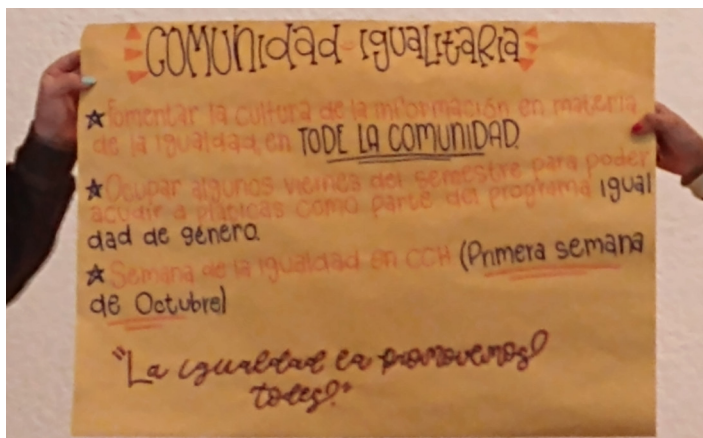 COMUNIDAD IGUALITARIA
Fomentar la cultura de la información en materia
de la igualdad en TODE LA COMUNIDAD.
Ocupar algunos viernes del semestre para poder
acudir a pláticas como parte del programa igual
dad de género.
Semana de la igualdad en CCH (Primera semana
de Octubre)
"La igualdad la promovemos
todes."